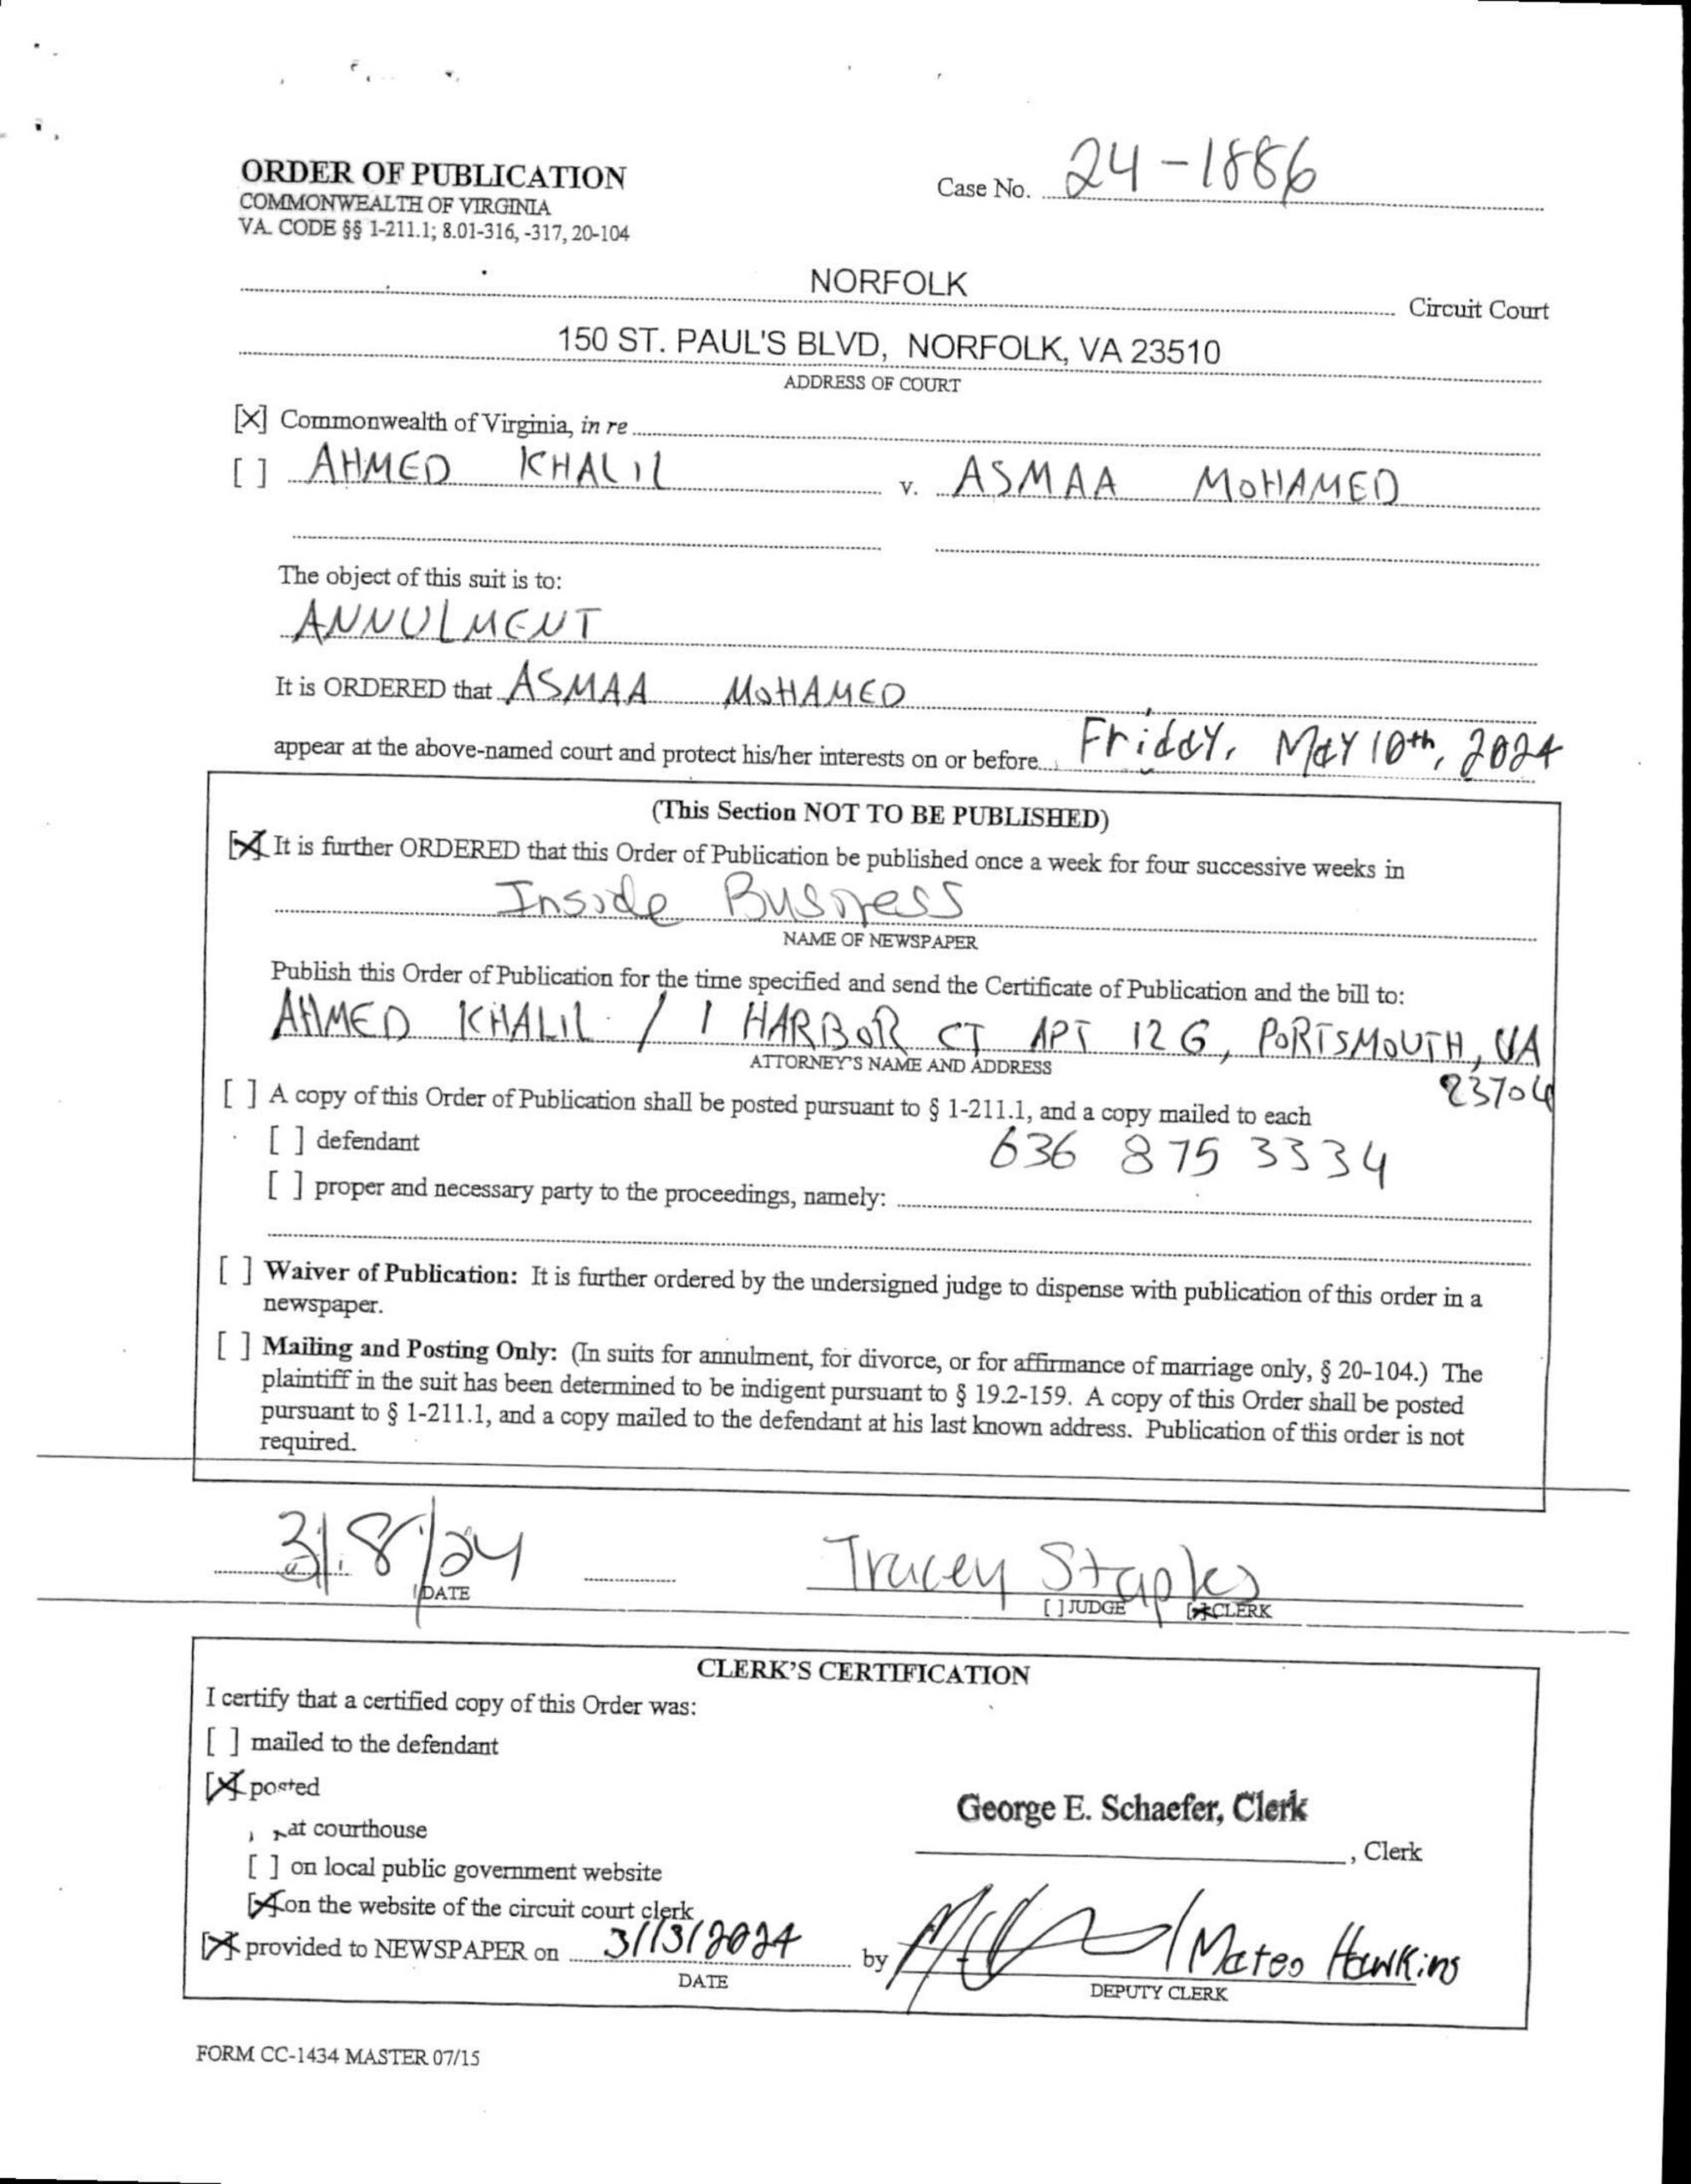 ORDER OF PUBLICATION
COMMONWEALTH OF VIRGINIA
VA. CODE §§ 1-211.1; 8.01-316, -317, 20-104
Case No. 24-1886
NORFOLK
Circuit Court
150 ST. PAUL'S BLVD, NORFOLK, VA 23510
ADDRESS OF COURT
[X] Commonwealth of Virginia, in re
[ ] AHMED KHALIL v. ASMAA MOHAMED
The object of this suit is to:
ANNULMENT
It is ORDERED that ASMAA MOHAMED
appear at the above-named court and protect his/her interests on or before Friday, May 10th, 2024
(This Section NOT TO BE PUBLISHED)
[X] It is further ORDERED that this Order of Publication be published once a week for four successive weeks in
Inside Business
NAME OF NEWSPAPER
Publish this Order of Publication for the time specified and send the Certificate of Publication and the bill to:
AHMED KHALIL / 1 HARBOR CT APT 12G, PORTSMOUTH, VA
ATTORNEY'S NAME AND ADDRESS
23704
[ ] A copy of this Order of Publication shall be posted pursuant to § 1-211.1, and a copy mailed to each
[ ] defendant
636 875 3334
[ ] proper and necessary party to the proceedings, namely:
[ ] Waiver of Publication: It is further ordered by the undersigned judge to dispense with publication of this order in a
newspaper.
[ ] Mailing and Posting Only: (In suits for annulment, for divorce, or for affirmance of marriage only, § 20-104.) The
plaintiff in the suit has been determined to be indigent pursuant to § 19.2-159. A copy of this Order shall be posted
pursuant to § 1-211.1, and a copy mailed to the defendant at his last known address. Publication of this order is not
required.
3/8/24 Tracey Staples
DATE [ ] JUDGE [X] CLERK
CLERK'S CERTIFICATION
I certify that a certified copy of this Order was:
[ ] mailed to the defendant
[X] posted
at courthouse
[ ] on local public government website
[X] on the website of the circuit court clerk
[X] provided to NEWSPAPER on 3/13/2024
DATE
George E. Schaefer, Clerk
, Clerk
by / Mateo Hawkins
DEPUTY CLERK
FORM CC-1434 MASTER 07/15